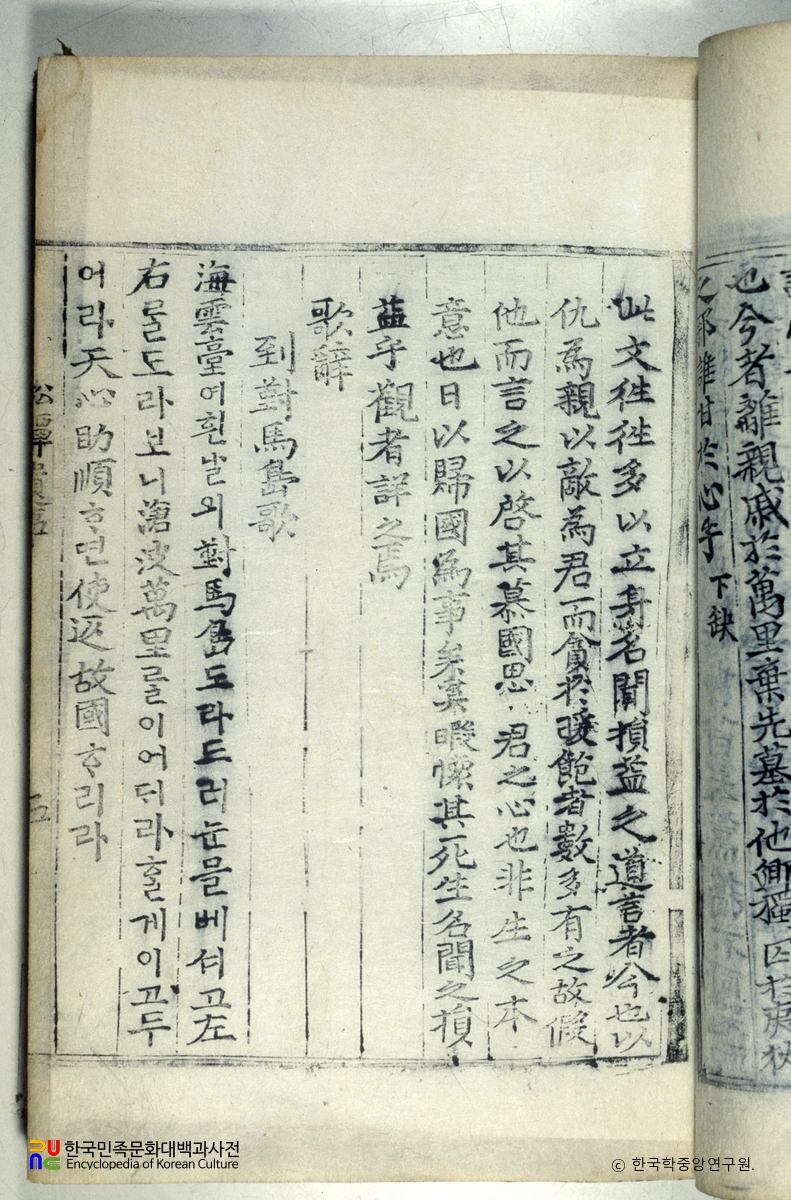 也今者離親戚於萬里棄先墓於他鄉獨囚於夷狄
之邦雖甘於心乎 下缺
此文徃徃多以立身名聞損益之道言者今也以
仇為親以敵為君而貪於暖飽者數多有之故假
他而言之以啓其慕國思君之心也非生之本
意也日以歸國為事矣奚暇懷其死生名聞之損
益乎觀者詳之焉
歌辭
到對馬島歌
海雲臺여흰날외對馬島도라드러눈믈베셔고左
右롤도라보니滄波萬里를이어듸라홀게이고두
어라天心助順ᄒᆞ면使返故國ᄒᆞ리라
五
한국민족문화대백과사전
Encyclopedia of Korean Culture
© 한국학중앙연구원.